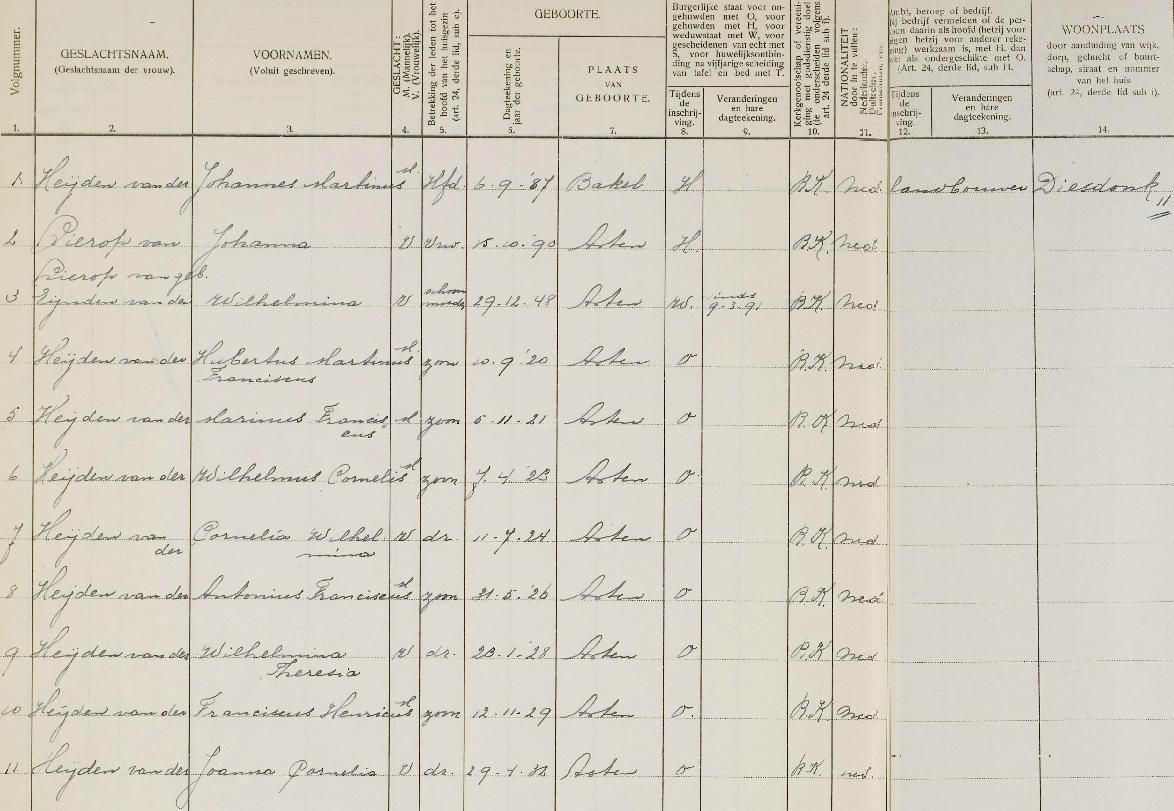 Volgnummer.
GESLACHTSNAAM.
(Geslachtsnaam der vrouw).
VOORNAMEN.
(Voluit geschreven).
GESLACHT:
M. (Mannelijk).
V. (Vrouwelijk).
Betrekking der leden tot het
hoofd van het huisgezin
(art. 24, derde lid, sub c).
GEBOORTE.
Dagteekening en
jaar der geboorte.
PLAATS
VAN
GEBOORTE.
Burgerlijke staat voor on-
gehuwden met O, voor
gehuwden met H, voor
weduwstaat met W, voor
gescheidenen van echt met
S, voor huwelijksontbin-
ding na vijfjarige scheiding
van tafel en bed met T.
Tijdens
de
inschrij-
ving.
Veranderingen
en hare
dagteekening.
Kerkgenootschap of vereeni-
ging met godsdienstig doel
(te onderscheiden volgens
art. 24 derde lid sub f).
NATIONALITEIT
door in te vullen:
Nederlandsche,
Duitsche,
Ambt, beroep of bedrijf.
bedrijf vermelden of de per-
soon daarin als hoofd (hetzij voor
eigen hetzij voor anderer reke-
ning) werkzaam is, met H. dan
wel als ondergeschikte met O.
(Art. 24, derde lid, sub H.
Tijdens
de
inschrij-
ving.
Veranderingen
en hare
dagteekening.
WOONPLAATS
door aanduiding van wijk,
dorp, gehucht of buurt-
schap, straat en nummer
van het huis
(art. 24, derde lid sub i).
1. 2. 3. 4. 5. 6. 7. 8. 9. 10. 11. 12. 13. 14.
1 Heijden van der Johannes Martinus M Hfd. 6.9.'87 Bakel H R.K. Ned. landbouwer Diesdonk 11
2 Pierop van Johanna V Vrw. 15.10.'90 Asten H. R.K. Ned.
Pierop van geb.
3 Eijnden van der Wilhelmina V schoon moeder 29.12.'48 Asten W. sinds 9-3-91 R.K. Ned
4 Heijden van der Hubertus Martinus M. zoon 10.9.'20 Asten O R.K. Ned.
Franciscus
5 Heijden van der Marinus Francis M zoon 5.11.21 Asten O R.K. Ned
cus
6 Heijden van der Wilhelmus Cornelis M zoon 7.4.'23 Asten O. R.K. Ned
7 Heijden van Cornelia Wilhel V dr. 11.7.24 Asten O R.K. Ned
der mina
8 Heijden van der Antonius Franciscus M zoon 31.5.'26 Asten O R.K. Ned
9 Heijden van der Wilhelmina V dr. 23.1.'28 Asten O R.K Ned
Theresia
10 Heijden van der Franciscus Henricus M zoon 12.11.29 Asten O. R.K Ned
11 Heijden van der Joanna Cornelia V dr. 29.4.32 Asten O R.K. ned.